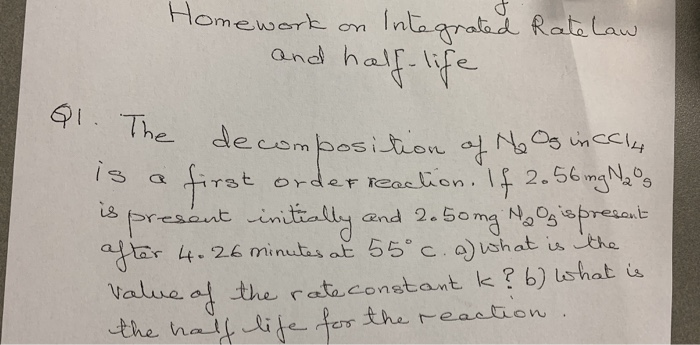 Homework on Integrated Rate Law
and half-life
Q1. The decomposition of N₂O₅ in CCl₄
is a first order reaction. If 2.56 mg N₂O₅
is present initially and 2.50 mg N₂O₅ is present
after 4.26 minutes at 55°C. a) what is the
value of the rate constant k? b) What is
the half life for the reaction.